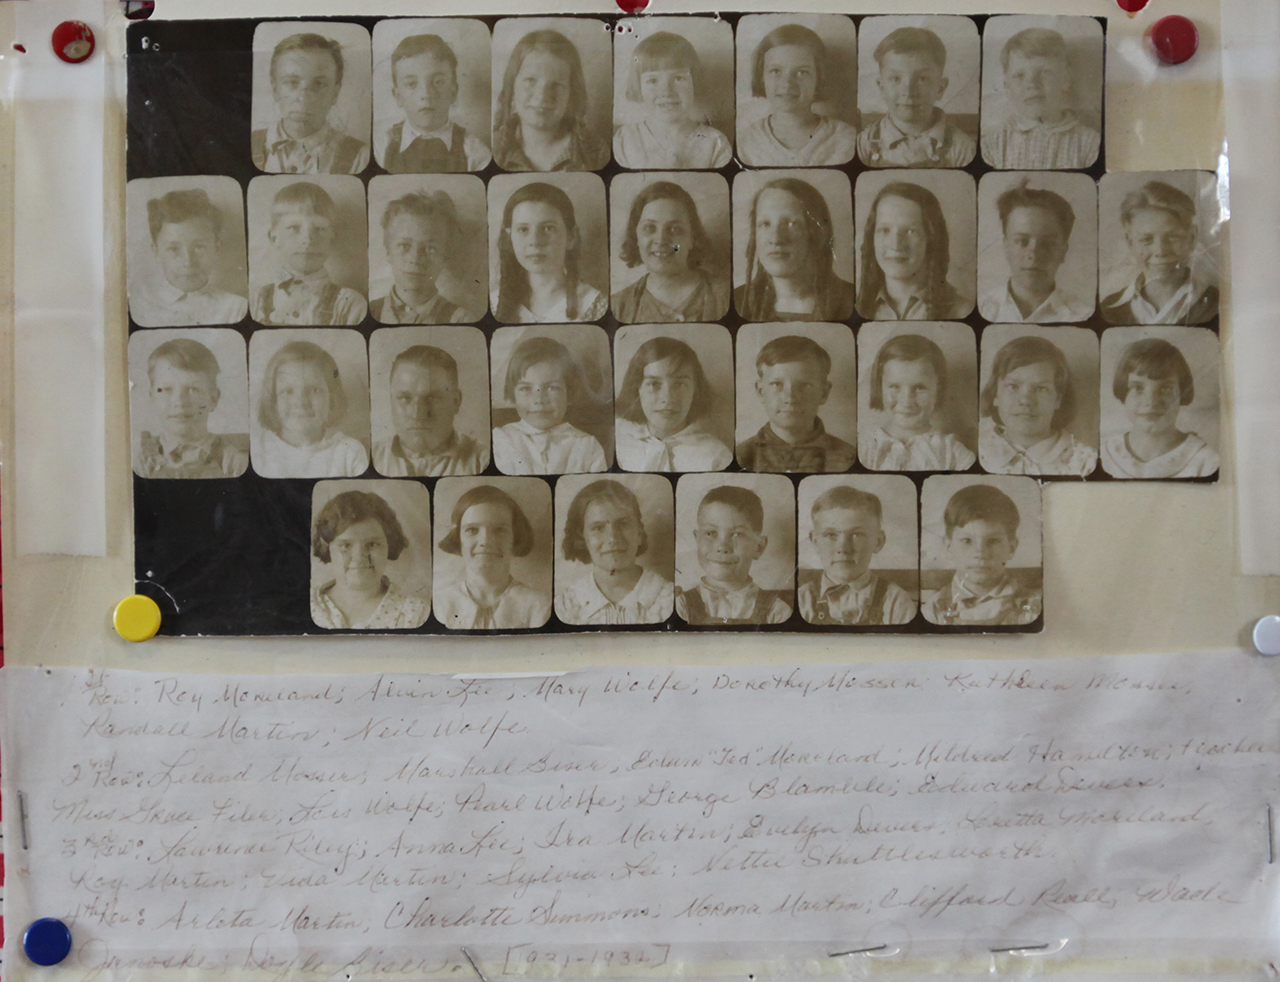 1st Row: Roy Moreland; Alvin Lee; Mary Wolfe; Dorothy Mosser Kathleen Mosser,
Randall Martin; Neil Wolfe.
2nd Row: Leland Mosser; Marshall Biser; Edwin "Ted" Moreland; Mildred Hamilton; teacher
Miss Grace Filer; Lois Wolfe; Pearl Wolfe; George Blamble; Edward
3rd Row: Lawrence Riley; Anna Lee; Ira Martin; Evelyn Loretta Moreland,
Roy Martin; Vida Martin; Sylvia Lee; Nettie Shuttlesworth.
4th Row: Arleta Martin, Charlotte Simmons; Norma Martin; Clifford Wade
Doyle [1931-1932]